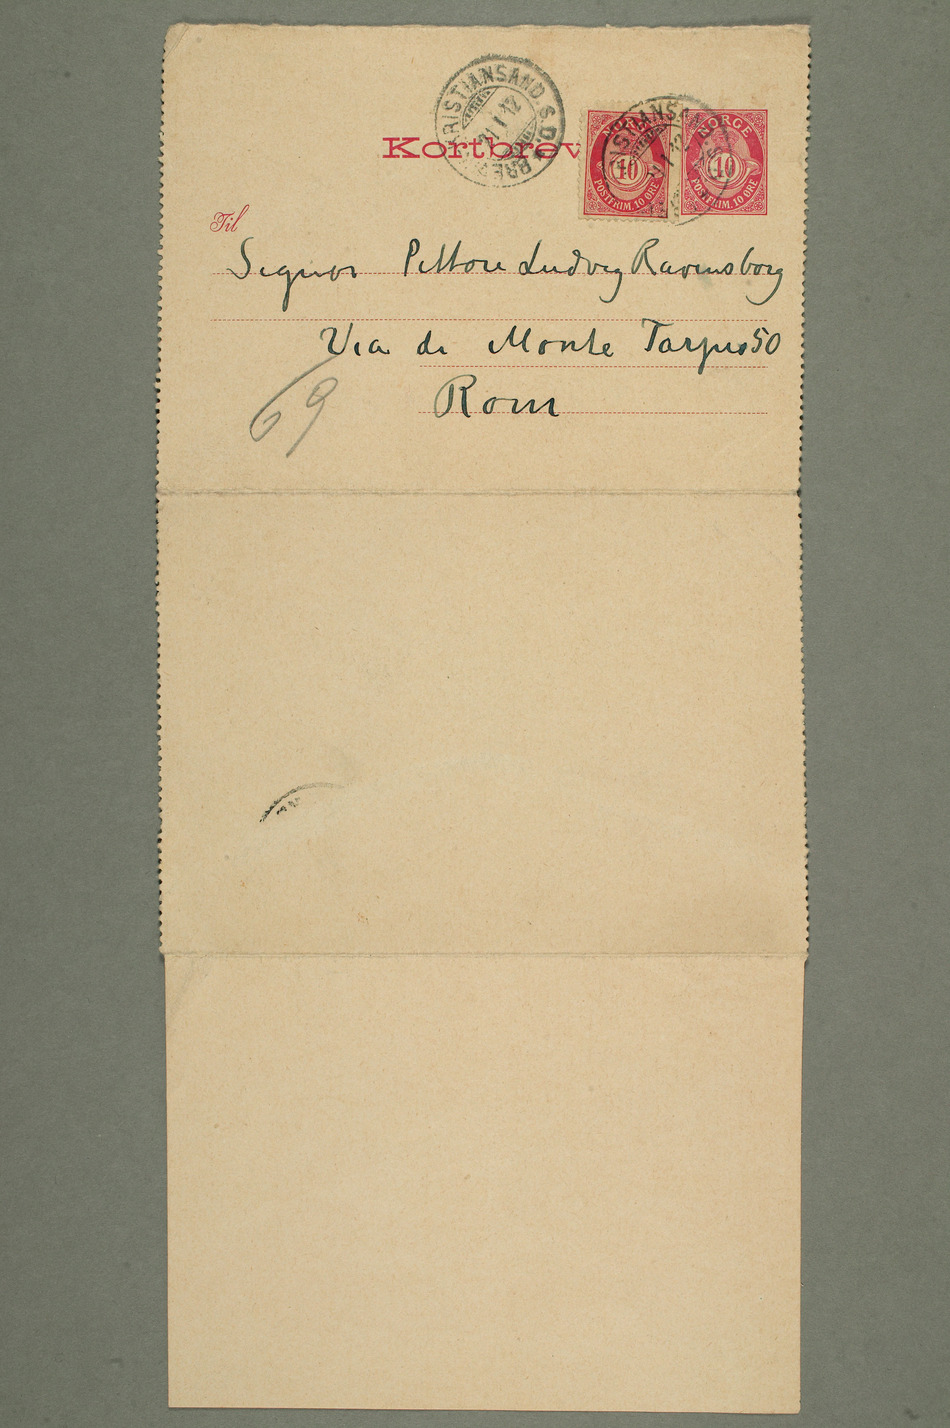 KRISTIANSAND. S. D. BREF
21 I 12
Kortbrev
NORGE
10
POSTFRIM. 10 ØRE
NORGE
10
POSTFRIM. 10 ØRE
Til
Signor Pittore Ludvig Ravensborg
Via di Monte Tarpeo 50
Rom
69